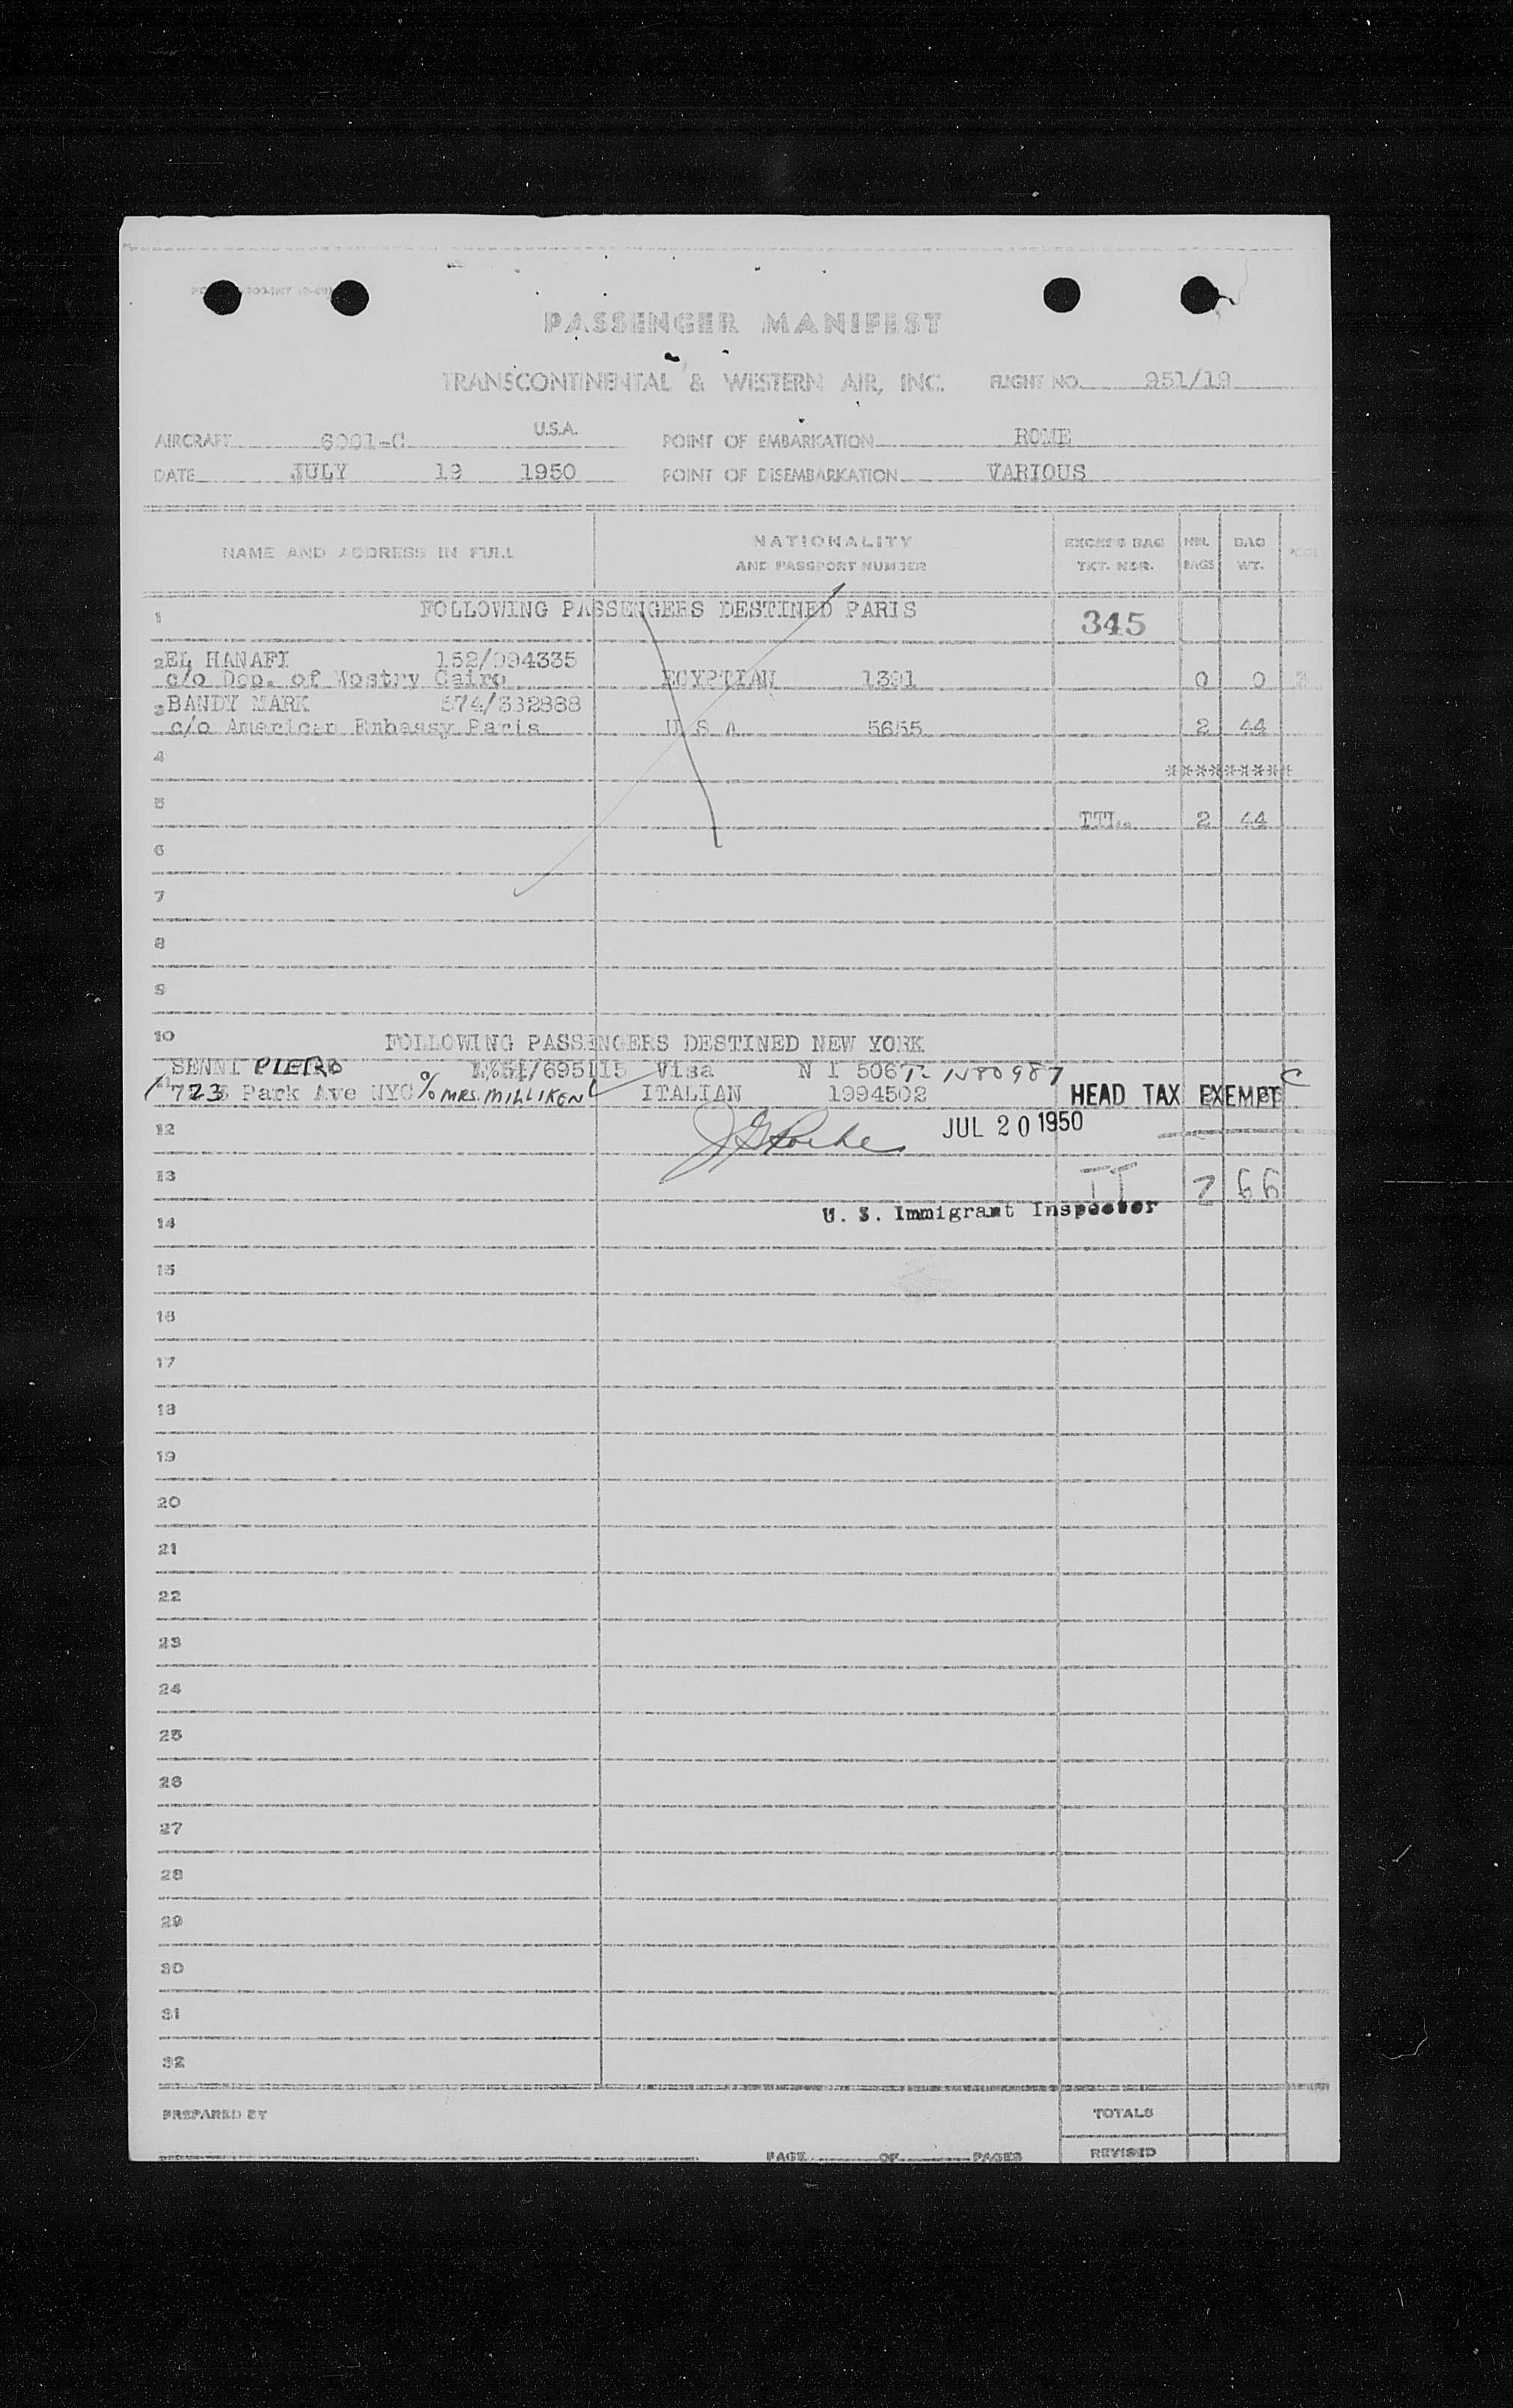 PASSENGER MANIFEST
TRANSCONTINENTAL & WESTERN AIR, INC. FLIGHT NO. 951/19
AIRCRAFT 6001-C U.S.A. POINT OF EMBARKATION ROME
DATE JULY 19 1950 POINT OF DISEMBARKATION VARIOUS
NAME AND ADDRESS IN FULL NATIONALITY AND PASSPORT NUMBER EXCESS BAG TKT. NBR. NBR. BAGS BAG WT.
1 FOLLOWING PASSENGERS DESTINED PARIS 345
2 EL HANAFI 152/094335
c/o Dep. of Mostry Cairo EGYPTIAN 1391 0 0
3 BANDY MARK 574/332888
c/o American Embassy Paris U S A 5655 2 44
4 ********
5 TTL. 2 44
6
7
8
9
10 FOLLOWING PASSENGERS DESTINED NEW YORK
SENNI PIETRO /695115 Visa N I 506
11 723 Park Ave NYC % MRS. MILLIKEN ITALIAN 1994502 HEAD TAX EXEMPT C
12 JUL 20 1950
13 TT 2 66
14 U. S. Immigrant Inspector
15
16
17
18
19
20
21
22
23
24
25
26
27
28
29
30
31
32
PREPARED BY TOTALS
PAGE OF PAGES REVISED